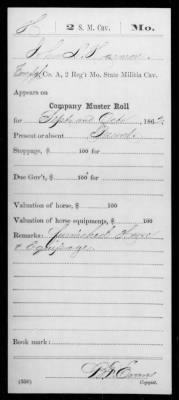 H 2 S. M. Cav. Mo.
Co. A, 2 Reg't Mo. State Militia Cav.
Appears on
Company Muster Roll
for Sept and Oct, 186
Present or absent Present
Stoppage, $ 100 for
Due Gov't, $ 100 for
Valuation of horse, $ 100
Valuation of horse equipments, $ 100
Remarks: Furnished Horse
& Equipage
Book mark:
(358) Copyist.